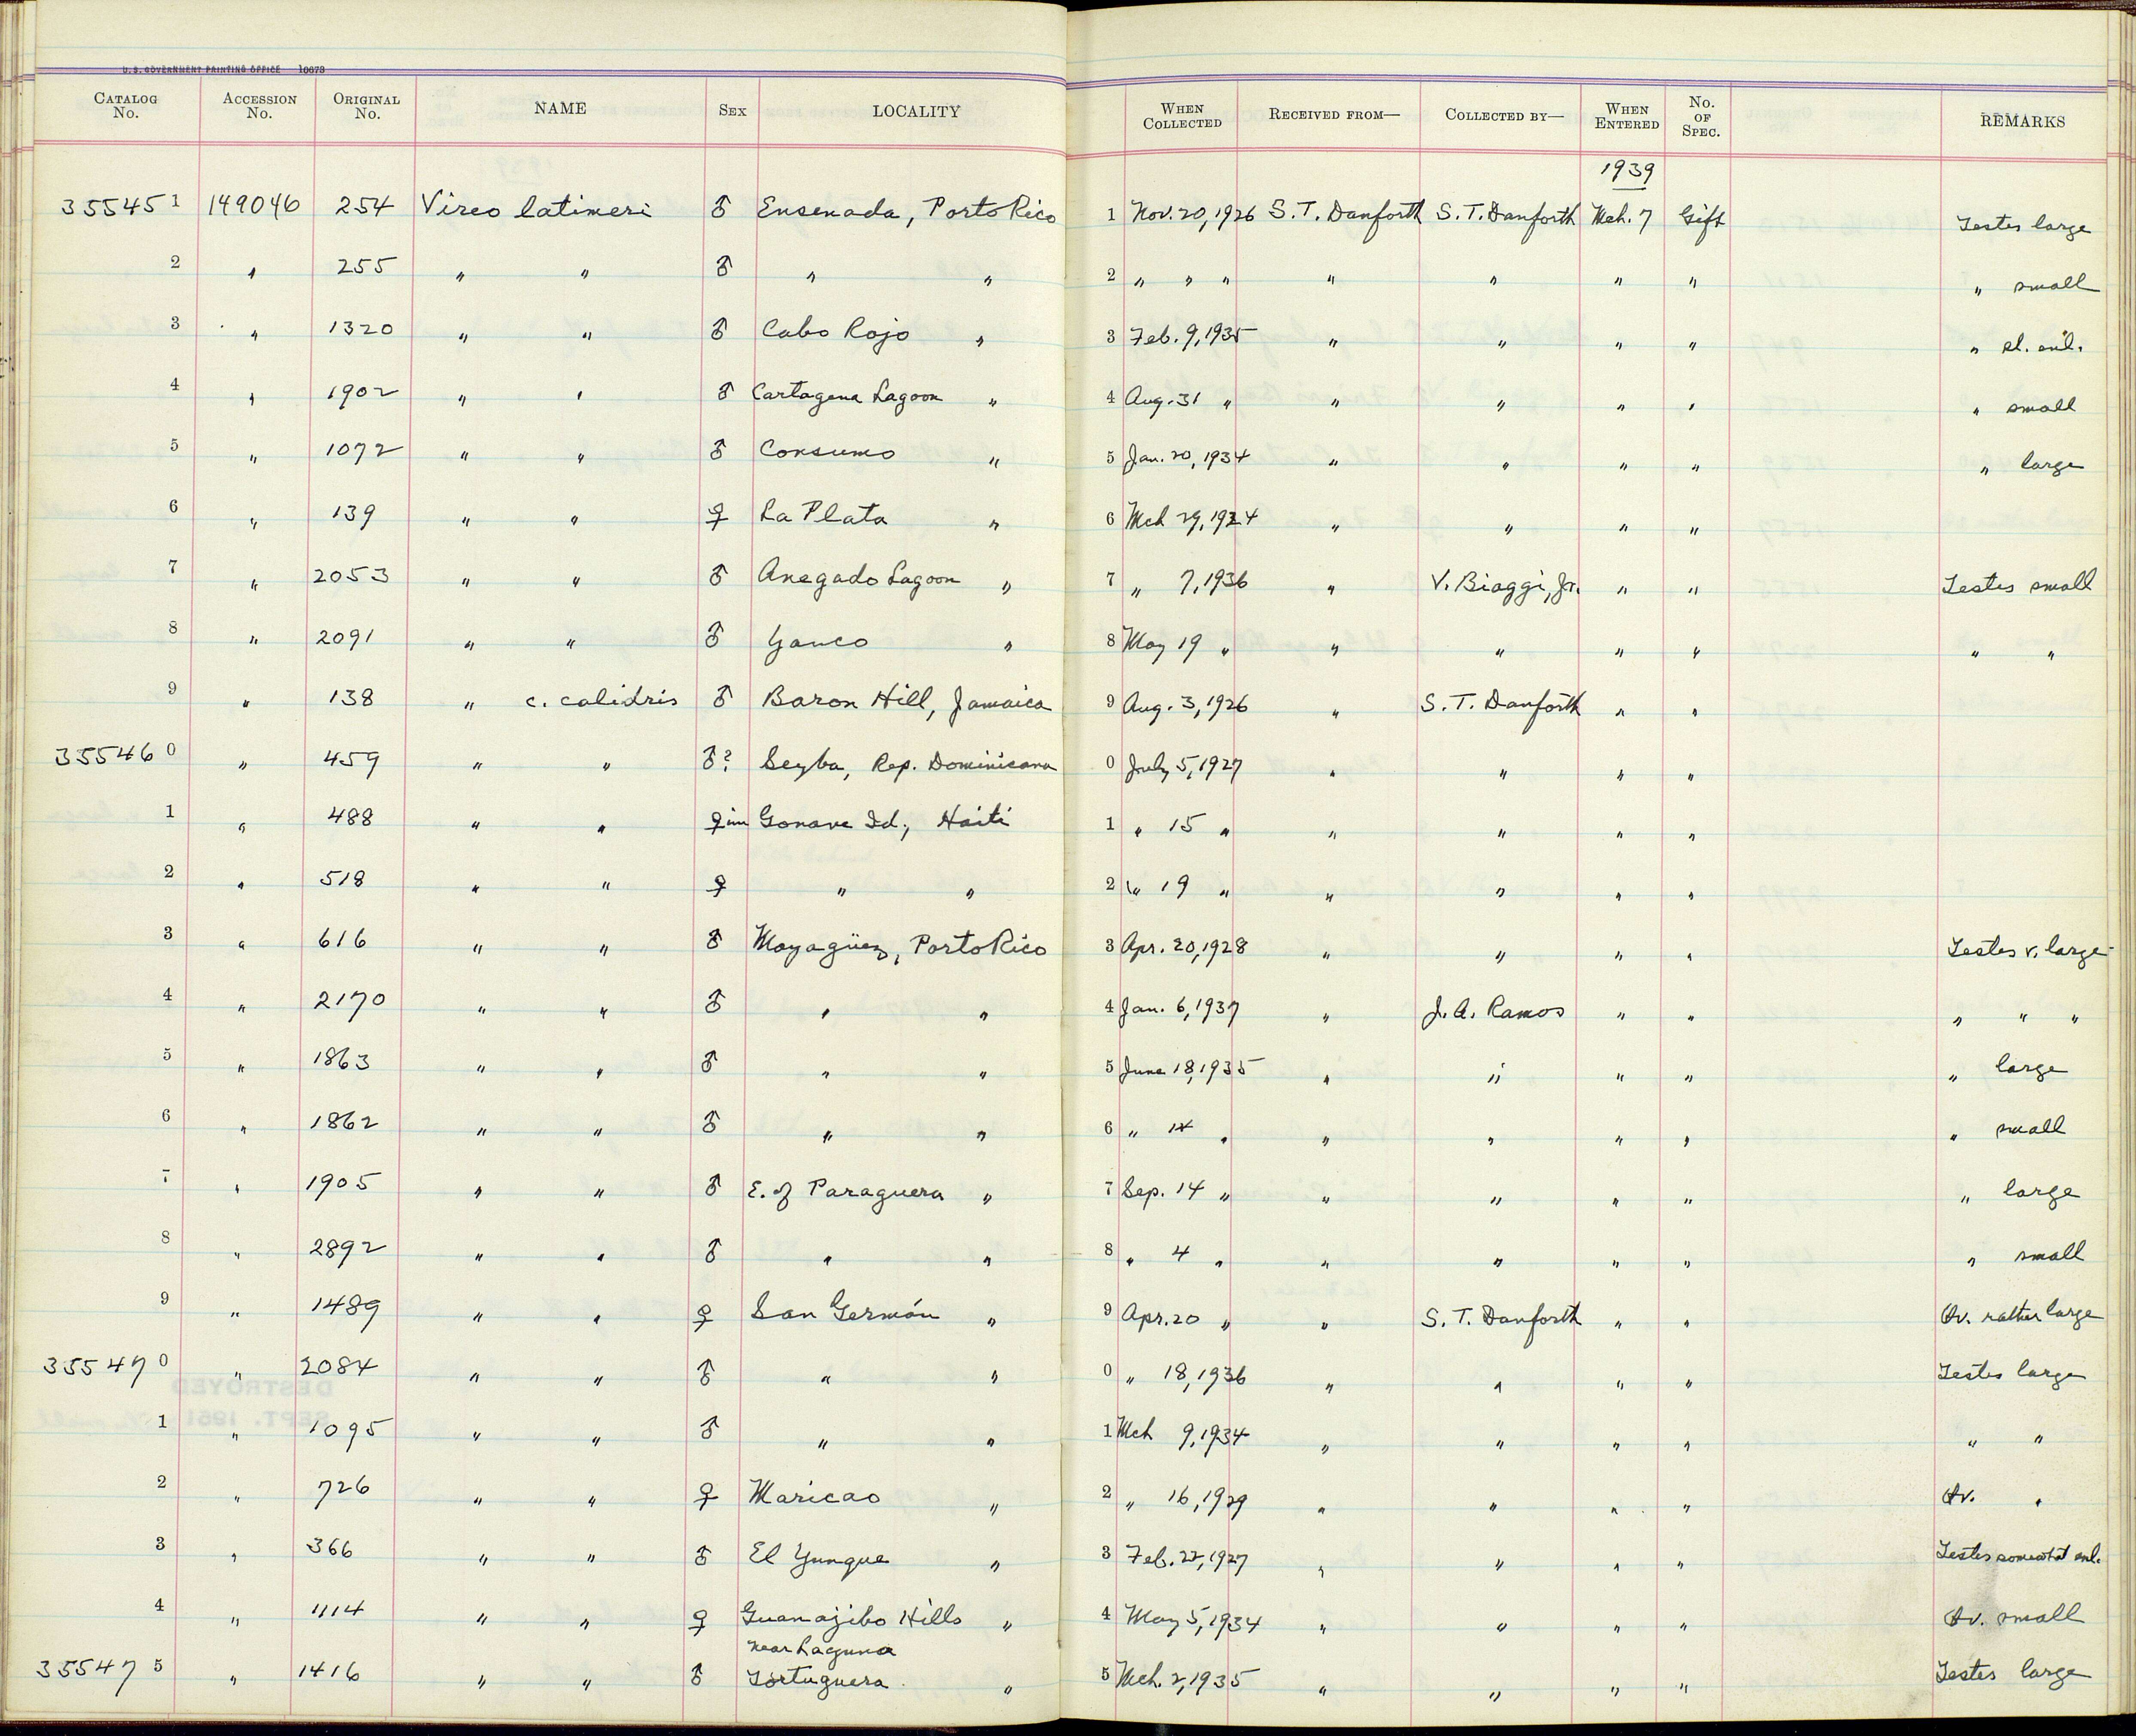 U. S. GOVERNMENT PRINTING OFFICE 10673
CATALOG No. ACCESSION No. ORIGINAL No. NAME SEX LOCALITY WHEN COLLECTED RECEIVED FROM— COLLECTED BY— WHEN ENTERED No. OF SPEC. REMARKS
1939
35545 1 149046 254 Vireo latimeri ♂ Ensenada, Porto Rico 1 Nov. 20, 1926 S. T. Danforth S. T. Danforth Mch. 7 Gift Testes large
2 " 255 " " ♂ " " 2 " " " " " " " " small
3 " 1320 " " ♂ Cabo Rojo " 3 Feb. 9, 1935 " " " " " sl. enl.
4 " 1902 " " ♂ Cartagena Lagoon " 4 Aug. 31 " " " " " " small
5 " 1072 " " ♂ Consumo " 5 Jan. 20, 1934 " " " " " large
6 " 139 " " ♀ La Plata " 6 Mch 29, 1924 " " " "
7 " 2053 " " ♂ Anegado Lagoon " 7 " 7, 1936 " V. Biaggi, Jr. " " Testes small
8 " 2091 " " ♂ Yauco " 8 May 19 " " " " " " "
9 " 138 " c. calidris ♂ Baron Hill, Jamaica 9 Aug. 3, 1926 " S. T. Danforth " "
35546 0 " 459 " " ♂? Seyba, Rep. Dominicana 0 July 5, 1927 " " " "
1 " 488 " " ♀ im Gonave Id., Haiti 1 " 15 " " " " "
2 " 518 " " ♀ " " 2 " 19 " " " " "
3 " 616 " " ♂ Mayagüez, Porto Rico 3 Apr. 20, 1928 " " " " Testes v. large
4 " 2170 " " ♂ " " 4 Jan. 6, 1937 " J. A. Ramos " " " " "
5 " 1863 " " ♂ " " 5 June 18, 1935 " " " " " large
6 " 1862 " " ♂ " " 6 " 14 " " " " " " small
7 " 1905 " " ♂ E. of Paraguera " 7 Sep. 14 " " " " " " large
8 " 2892 " " ♂ " " 8 " 4 " " " " " " small
9 " 1489 " " ♀ San Germán " 9 Apr. 20 " " S. T. Danforth " " Ov. rather large
35547 0 " 2084 " " ♂ " " 0 " 18, 1936 " " " " Testes large
1 " 1095 " " ♂ " " 1 Mch 9, 1934 " " " " " "
2 " 726 " " ♀ Maricao " 2 " 16, 1929 " " " " Ov. "
3 " 366 " " ♂ El Yunque " 3 Feb. 22, 1927 " " " " Testes somewhat enl.
4 " 1114 " " ♀ Guanajibo Hills " 4 May 5, 1934 " " " " Ov. small
near Laguna
35547 5 " 1416 " " ♂ Tortuguera " 5 Mch. 2, 1935 " " " " Testes large